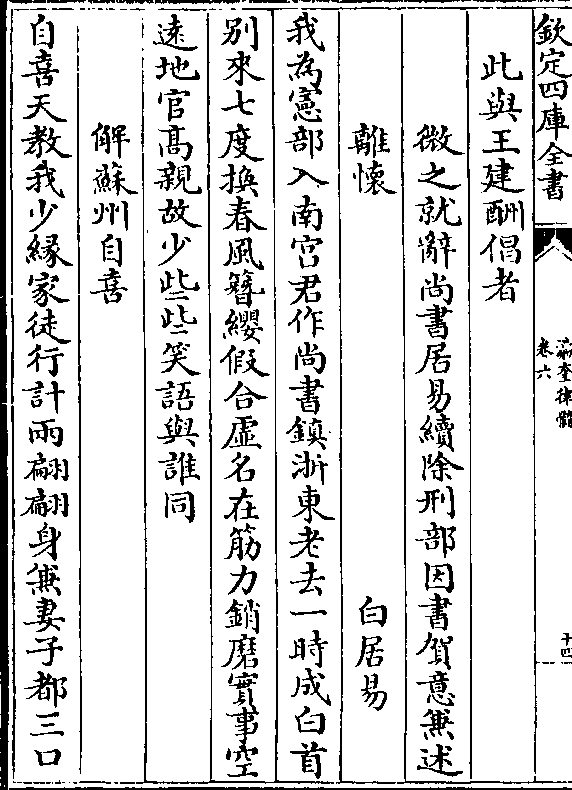 欽定四庫全書
瀛奎律髓
卷六
十四
此與王建酬倡者
微之就辭尚書居易續除刑部因書賀意兼述
離懷 白居易
我為憲部入南宮君作尚書鎮浙東老去一時成白首
別來七度換春風簪纓假合虛名在筋力銷磨實事空
逺地官髙親故少些些笑語與誰同
解蘇州自喜
自喜天教我少縁家徒行計兩翩翩身兼妻子都三口